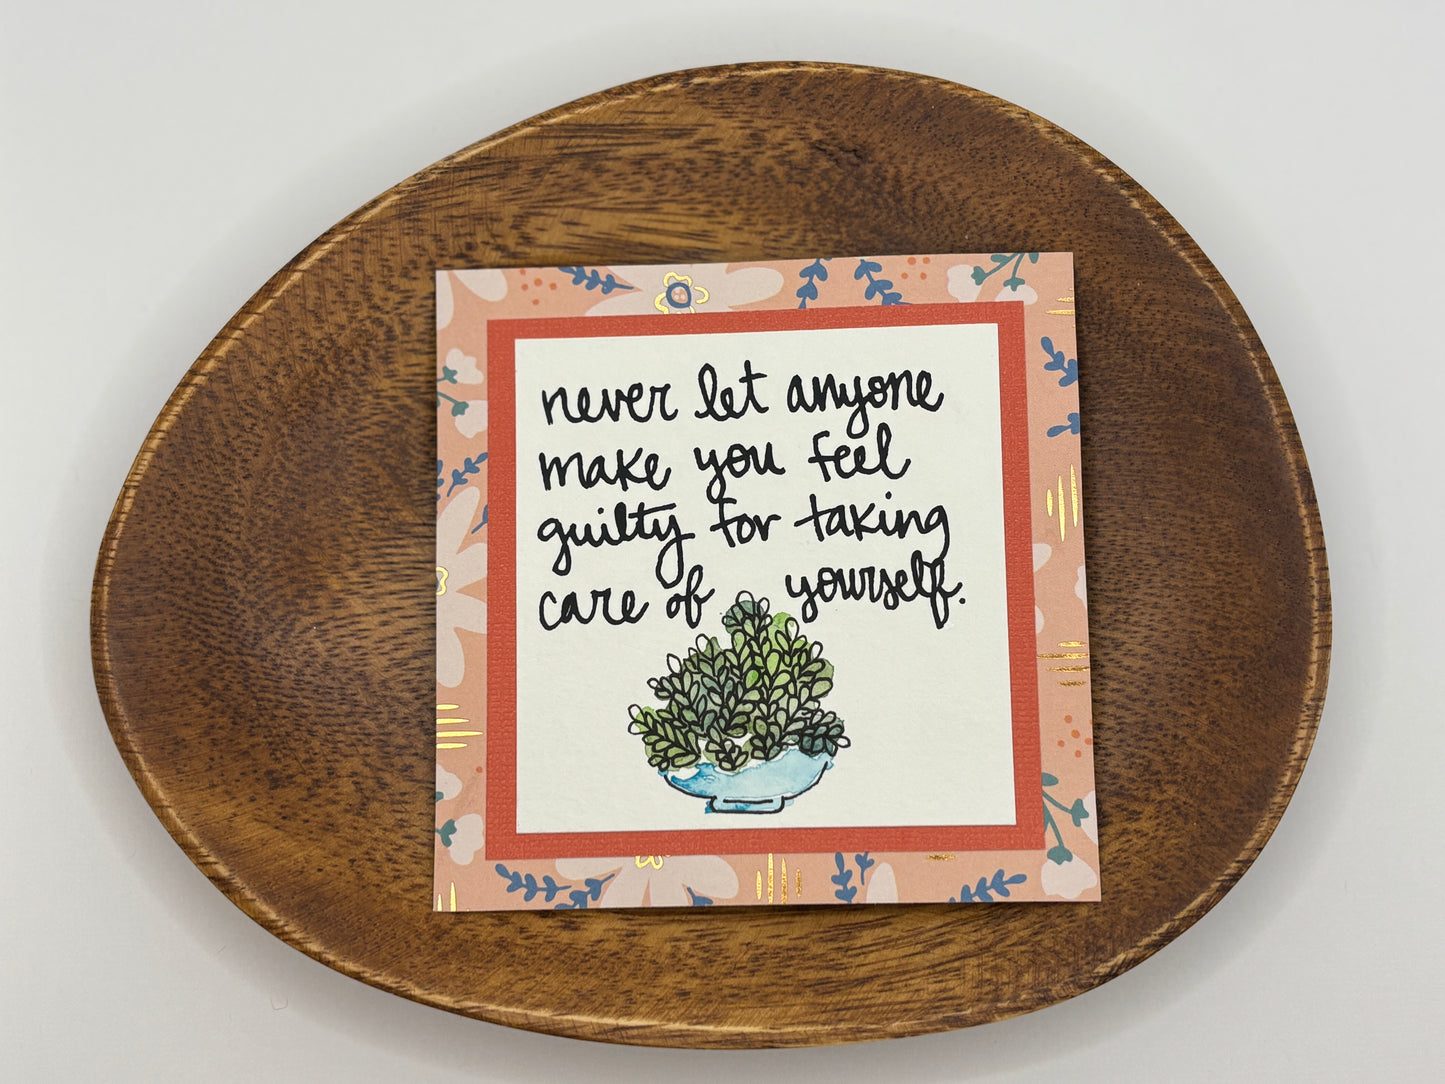 never let anyone
make you feel
guilty for taking
care of yourself.